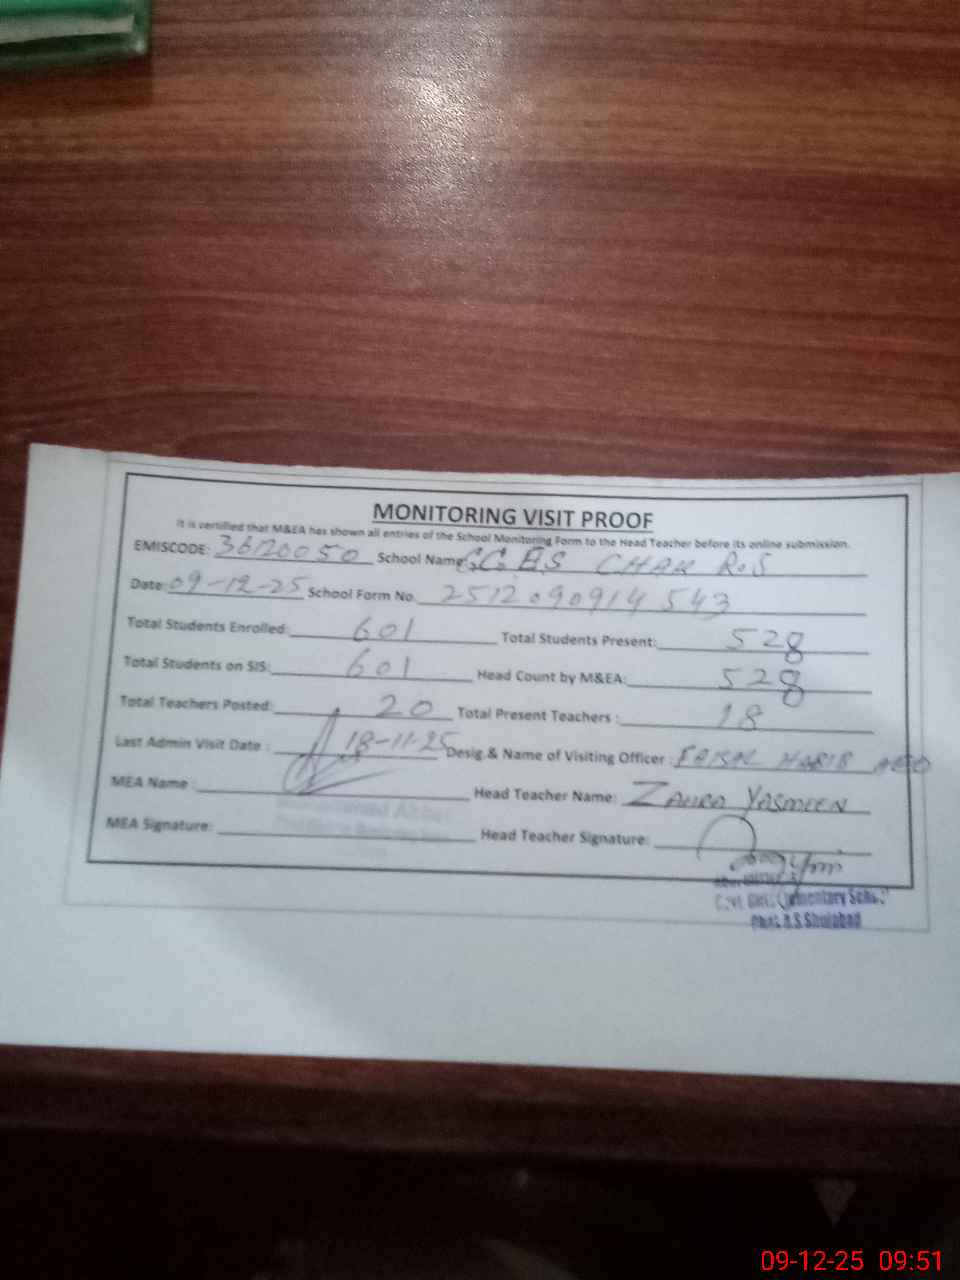 MONITORING VISIT PROOF
It is certified that M&EA has shown all entries of the School Monitoring Form to the Head Teacher before its online submission.
EMISCODE: 36120050 School Name G.G.E.S CHAK R.S
Date: 09-12-25 School Form No. 2512090914543
Total Students Enrolled: 601 Total Students Present: 528
Total Students on SIS: 601 Head Count by M&EA: 528
Total Teachers Posted: 20 Total Present Teachers : 18
Last Admin Visit Date : 18-11-25 Desig.& Name of Visiting Officer : FAISAL HABIB AEO
MEA Name : Head Teacher Name: ZAHRA YASMEEN
MEA Signature: Head Teacher Signature:
Govt. Girls Elementary School
Chak R.S Shujabad
09-12-25 09:51